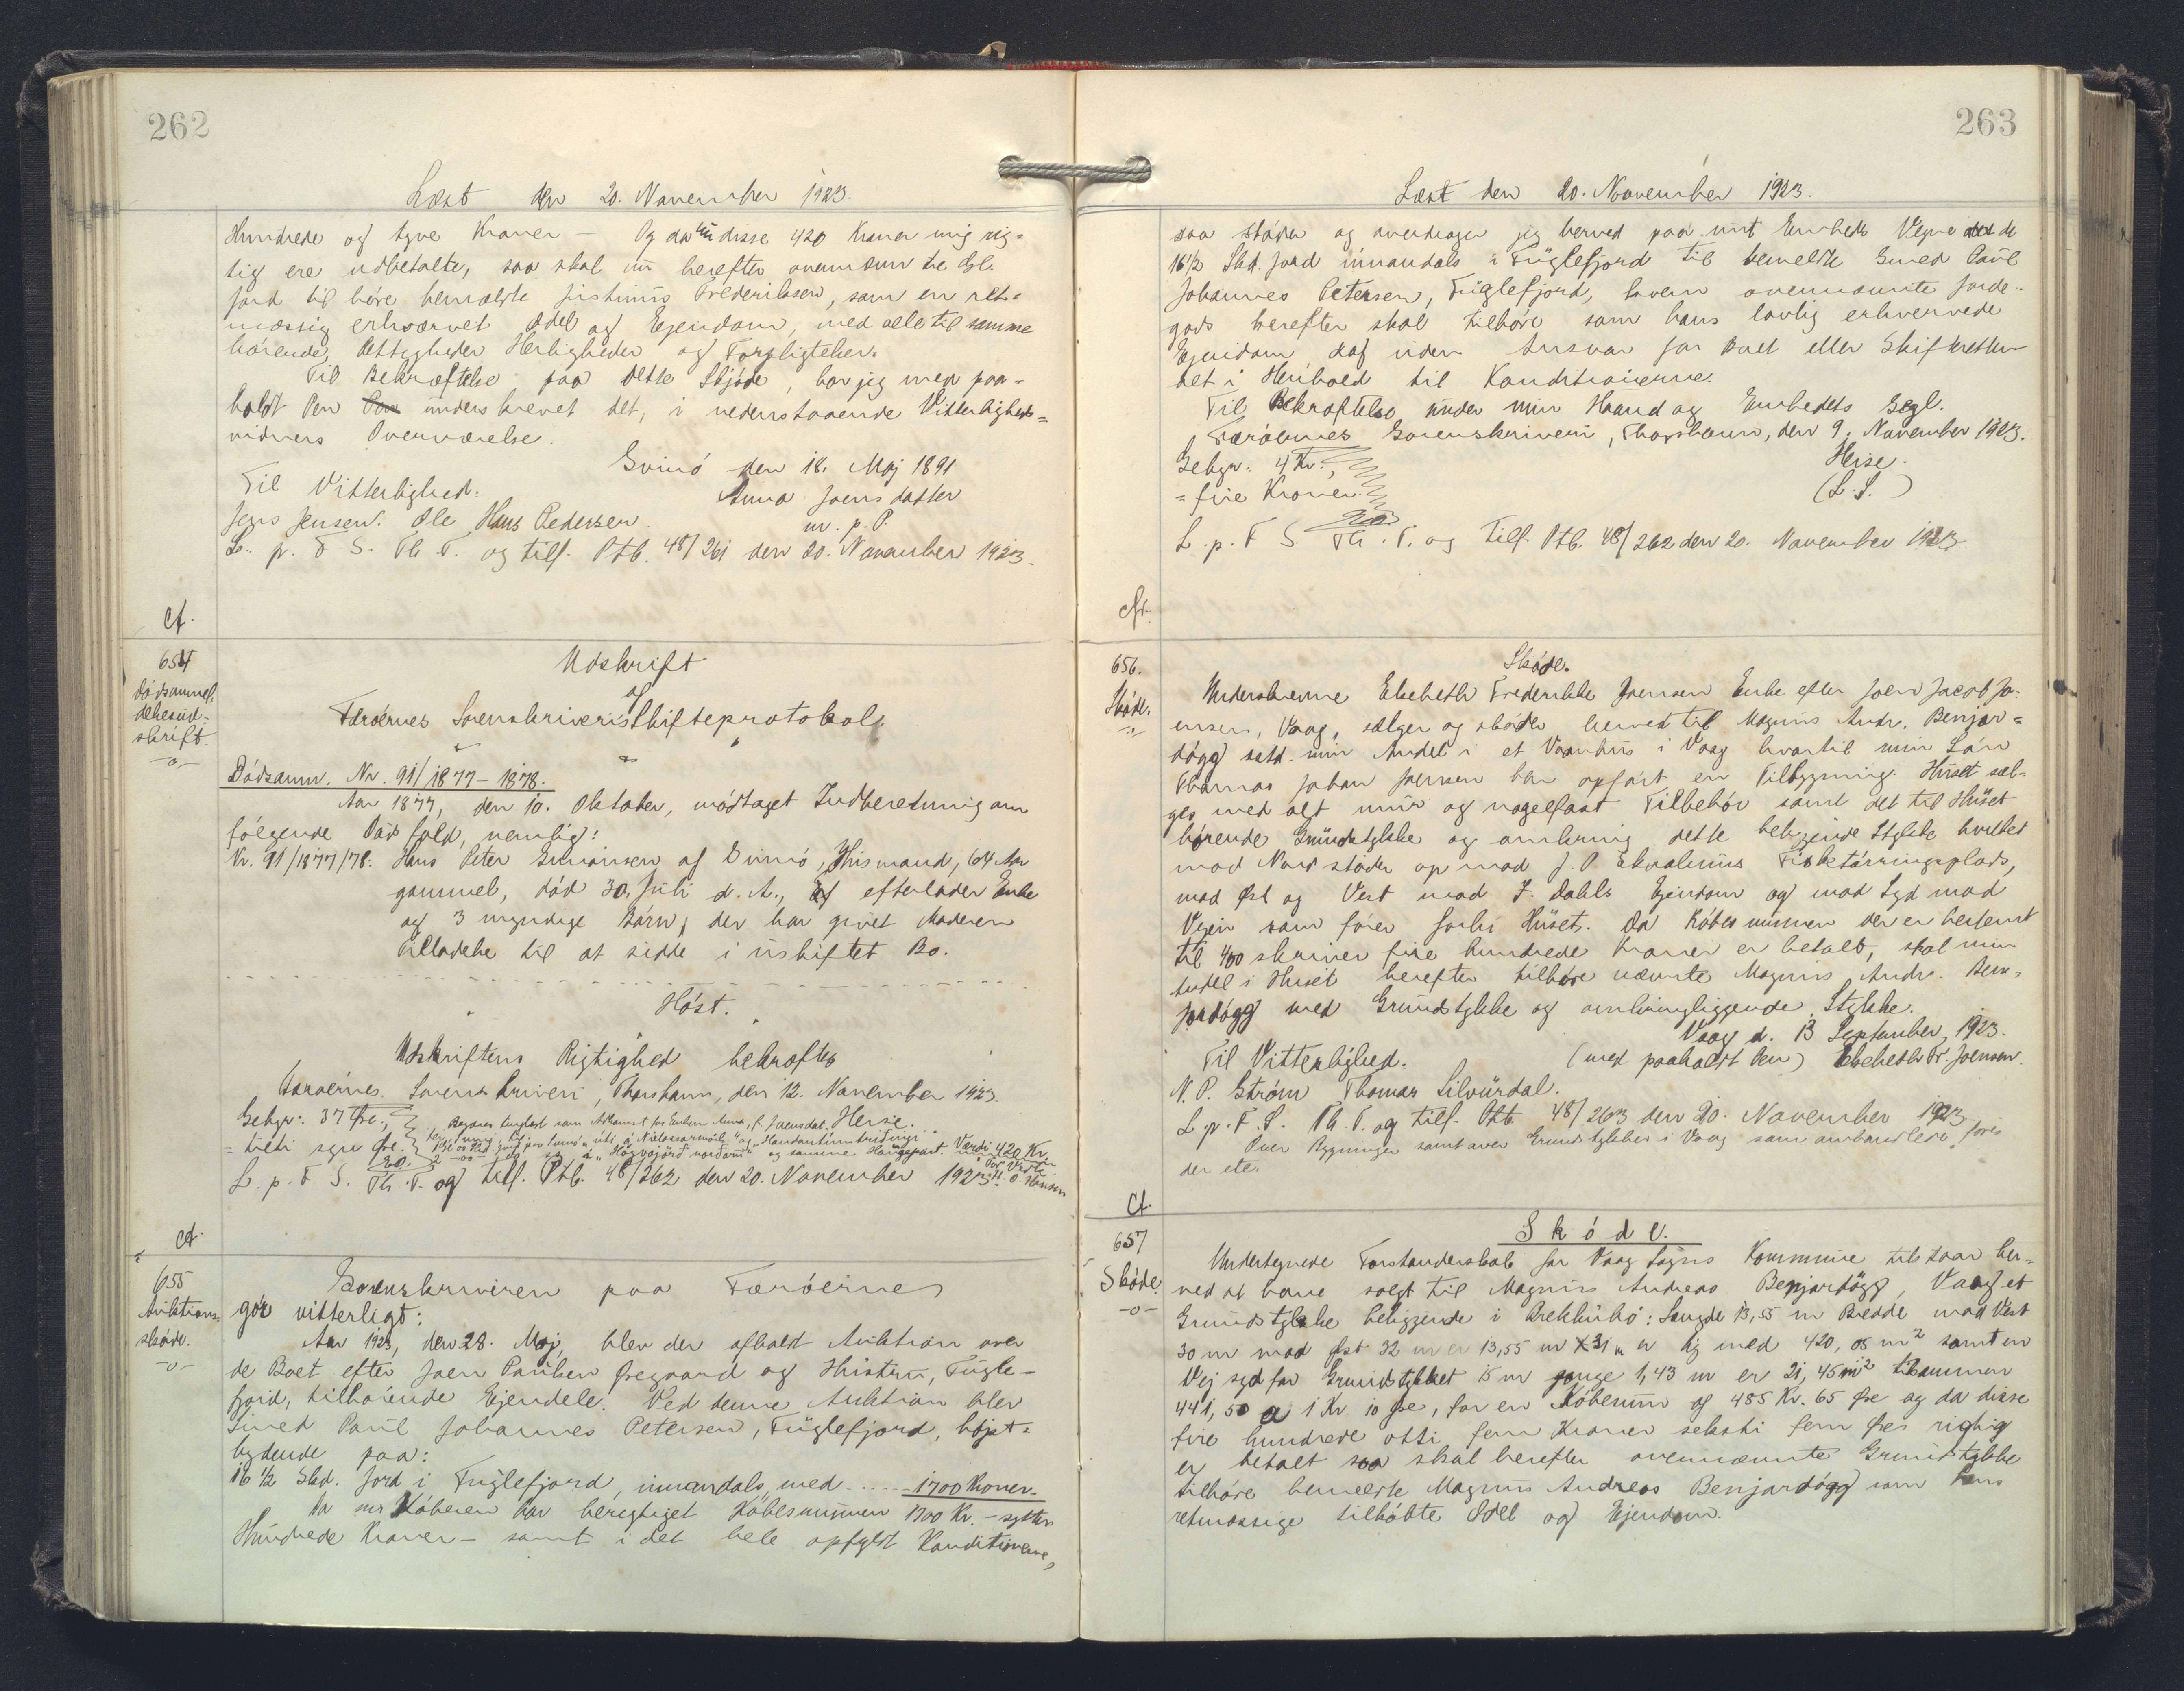 262
Læst den 20. November 1923.
Hundrede og tyve Kroner — Og da nu disse 420 Kroner mig rig=
tig ere udbetalte, saa skal nu herefter ovennævnte Gl.
Jord tilhöre bemældte Justinus Frederiksen, som en ret=
mæssig erhværvet Odel og Ejendom, med alle til samme
hörende Rettigheder Herligheder og Forpligtelser.
Til Bekræftelse paa dette Skjöde, har jeg med paa=
holdt Pen underskrevet det, i nedenstaaende Vitterligheds=
vidners Overværelse.
Svinö den 18. Maj 1891
Til Vitterlighed:
Anna Joensdatter
Jens Jensen. Ole Hans Pedersen.
m. p. P.
L. p. F. S. Th. T. og tilf. Ptb. 48/261 den 20. November 1923.
Cf.
654
Dödsanmel=
delsesud=
skrift.
-o-
Udskrift
af
Færöernes Sorenskriveris Skifteprotokol
Dödsanm. Nr. 91/1877-1878.
Aar 1877, den 10. Oktober, modtaget Indberetning om
fölgende Dödsfald, nemlig:
Nr. 91/1877/78. Hans Peter Simonsen af Svinö, Husmand, 64 Aar
gammel, död 30. Juli d. A., efterlader Enke
og 3 myndige Börn, der har givet Moderen
Tilladelse til at sidde i uskiftet Bo.
Höst.
Udskriftens Rigtighed bekræftes
Færoernes Sorenskriveri, Thorshavn, den 12. November 1923.
Gebyr: 37 Öre.
Heise.
= treti syv Öre.
Værdi 420 Kr.
L. p. F. S. Th. T. og tilf. Ptb. 48/262 den 20. November 1923.
Cf.
655
Auktions=
sköde.
-o-
Sorenskriveren paa Færöerne
gör vitterligt:
Aar 1923, den 28. Maj, blev der afholdt Auktion over
de Boet efter Joen Paulsen Öregaard og Hustru, Fugle=
fjord, tilhörende Ejendele. Ved denne Auktion blev
Smed Paul Johannes Petersen, Fuglefjord, höjst=
bydende paa:
16 1/2 Skd. Jord i Fuglefjord, innandals, med ..... 1700 Kroner.
Da nu Köberen har berigtiget Köbesummen 1700 Kr. — sytten
Hundrede Kroner — samt i det hele opfyldt Konditionerne,
263
Læst den 20. November 1923.
saa sköder og overdrager jeg herved paa mit Embeds Vegne de
16 1/2 Skd. Jord innandals i Fuglefjord til bemeldte Smed Paul
Johannes Petersen, Fuglefjord, hvem ovennævnte Jorde=
gods herefter skal tilhöre som hans lovlig erhvervede
Ejendom, dog uden Ansvar for Boet eller Skifteretten
alt i Henhold til Konditionerne.
Til Bekræftelse under min Haand og Embedets Segl.
Færöernes Sorenskriveri, Thorshavn, den 9. November 1923.
Gebyr: 4 Kr.
Heise.
= fire Kroner.
(L.S.)
L. p. F. S. Th. T. og tilf. Ptb. 48/262 den 20. November 1923
Cfr.
656.
Sköde.
-"-
Sköde.
Underskrevne Elsebeth Frederikke Joensen Enke efter Joen Jacob Jo=
ensen, Vaag, sælger og sköder herved til Magnus Andr. Benjar=
dögg min Andel i et Vaanhus i Vaag hvortil min Sön
Thomas Johan Joensen har opfört en Tilbygning. Huset sæl=
ges med alt mur og nagelfast Tilbehör samt det til Huset
hörende Grundstykke og omkring dette beliggende Stykke hvilket
mod Nord stöder op mod J. P. Ekholms Fisketörringsplads,
mod Öst og Vest mod J. Dahls Ejendom og mod Syd mod
Vejen som förer forbi Huset. Da Köbesummen der er bestemt
til 400 skriver fire hundrede Kroner er betalt, skal min
Andel i Huset herefter tilhöre nævnte Magnus Andr. Ben=
jardögg med Grundstykke og omkringliggende Stykke.
Vaag d. 13 September 1923.
Til Vitterlighed.
(med paaholdt Pen) Elsebeth Fr. Joensen.
N. P. Ström Thomas Silvurdal.
L. p. F. S. Th. T. og tilf. Ptb. 48/263 den 20. November 1923
Over Bygninger samt over Grundstykker i Vaag som ombandlede fores
der etc.
Cf.
657
Sköde
-o-
Sköde.
Undertegnede Forstanderskab for Vaag Sogns Kommune tilstaar her=
ved at have solgt til Magnus Andreas Benjardögg, Vaag, et
Grundstykke beliggende i Brekkubö: Længde 13,55 m Bredde mod Vest
30 m mod Öst 32 m er 13,55 m × 31 m er lig med 420,05 m² samt en
Vej syd for Grundstykket 15 m gange 1,43 m er 21,45 m² tilsammen
441,50 a 1 Kr. 10 Öre, for en Köbesum af 485 Kr. 65 Öre og da disse
fire hundrede otti fem Kroner seksti fem Öre rigtig
er betalt saa skal herefter ovennævnte Grundstykke
tilhöre bemeldte Magnus Andreas Benjardögg som hans
retmæssige tilköbte Odel og Ejendom.